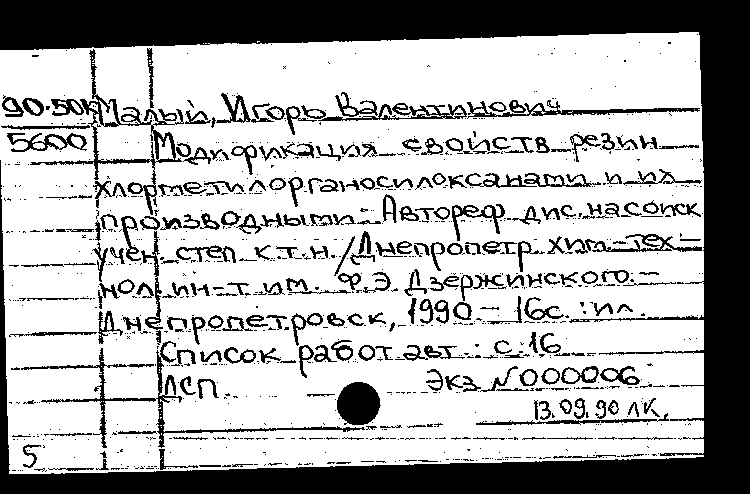 90-50К Малый, Игорь Валентинович
5600 Модификация свойств резин
хлорметилорганосилоксанами и их
производными: Автореф дис. на соиск
учен. степ к.т.н. / Днепропетр. хим.-тех-
нол. ин-т им. Ф.Э. Дзержинского.-
Днепропетровск, 1990 - 16с. : ил.
Список работ авт.: с.16
ДСП. Экз №000006
13.09.90 ЛК.
5